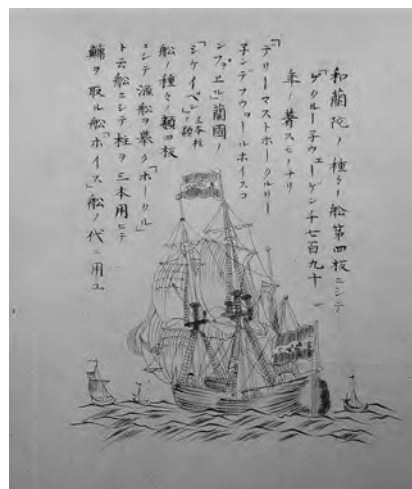 和蘭陀ノ種々ノ舩第四板ニシテ
「ゲクルー子ウェーゲン千七百九十
年ノ著スモノナリ
「デリーマストホークルリー
子ンデフウヲールホイスコ
ンプァエル」蘭國ノ
「シケイペン」三本柱ノ類
舩ノ種々ノ類四板
ニシテ漁舩ヲ摹ク「ホークル」
ト云舩ニシテ柱ヲ三本用ヒテ
鱈ヲ取ル舩「ホイス」舩ノ代ニ用ユ